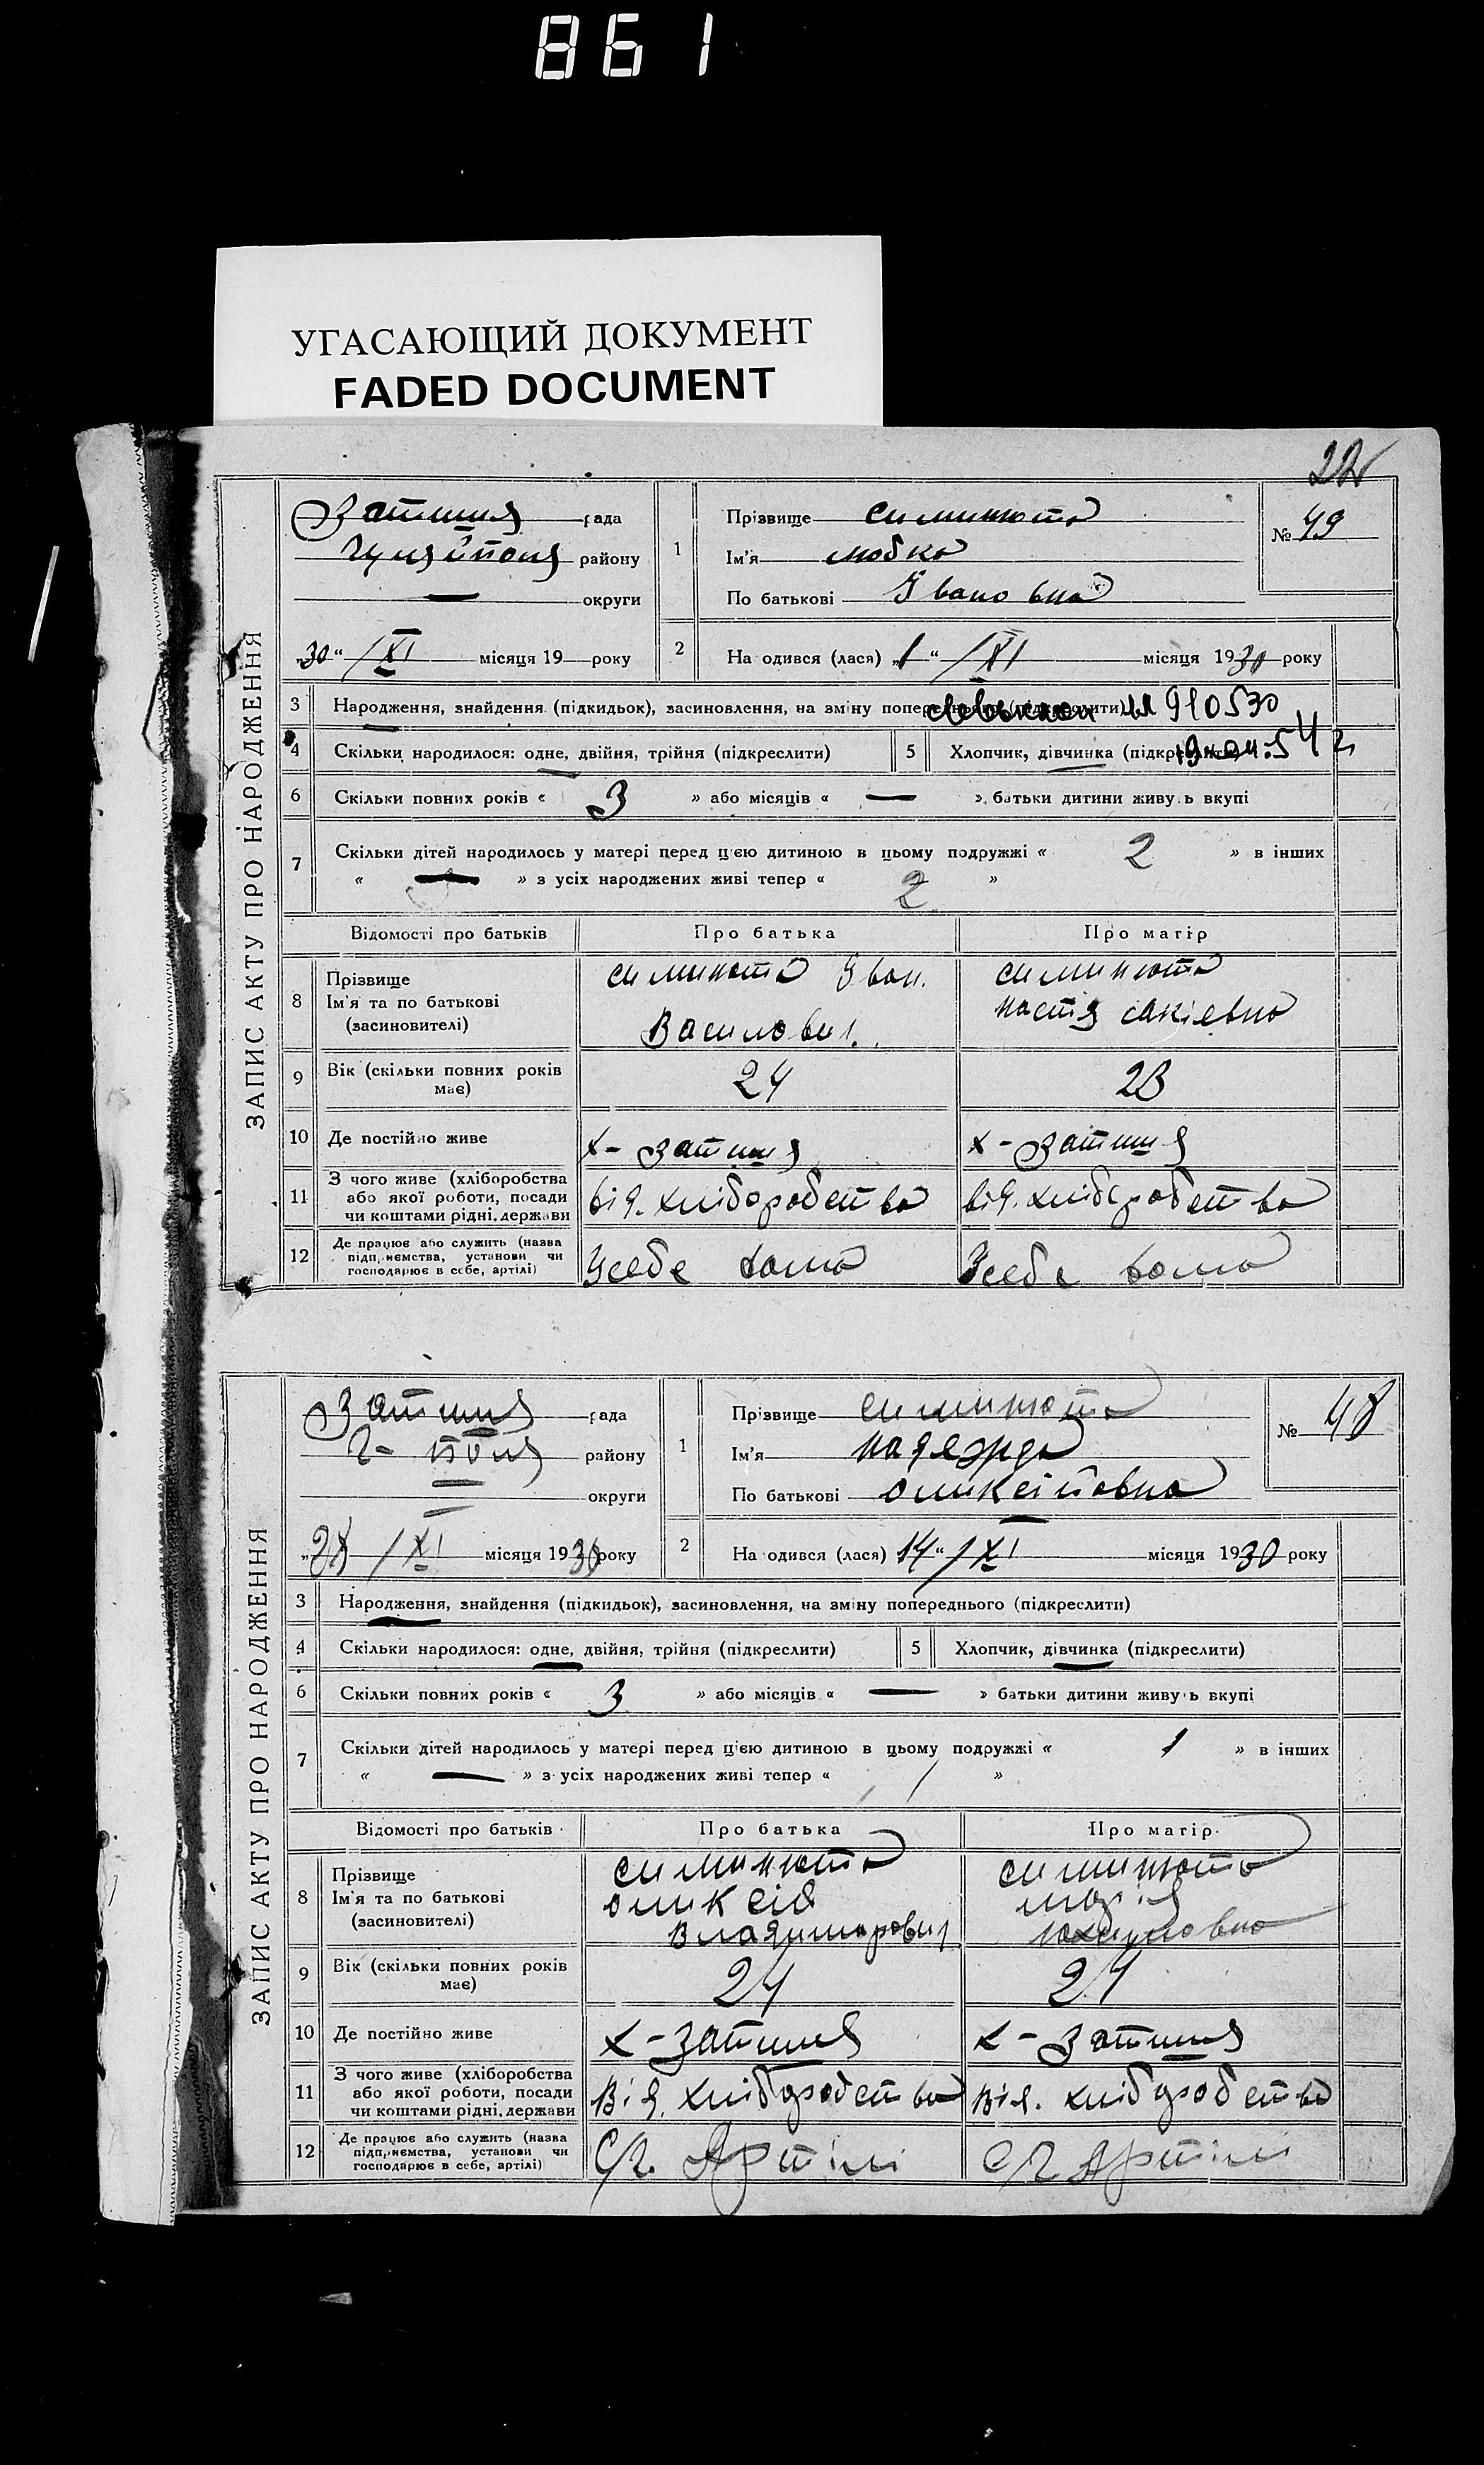 861
УГАСАЮЩИЙ ДОКУМЕНТ
FADED DOCUMENT
22
ЗАПИС АКТУ ПРО НАРОДЖЕННЯ
Затишя рада
Гуляйполя районy
— округи
„30“ /XI місяця 19 року
1 Прізвище симинюта
Ім'я любка
По батькові Івановна
№ 49
2 На одився (лася) „1“ /XI місяця 1930 року
3 Народження, знайдення (підкидьок), засиновлення, на зміну
910530
4 Скільки народилося: одне, двійня, трійня (підкреслити) 5 Хлопчик, дівчинка
54
6 Скільки повних років « 3 » або місяців « — » батьки дитини живу ь вкупі
7 Скільки дітей народилось у матері перед цією дитиною в цьому подружжі « 2 » в інших
« — » з усіх народжених живі тепер « 2 »
Відомості про батьків Про батька Про матір
8 Прізвище
Ім'я та по батькові
(засиновителі)
симинюта Іван.
Василович.
симинюта
настя сакіевна
9 Вік (скільки повних років
має)
24 23
10 Де постійно живе х- затишя х- затишя
11 З чого живе (хліборобства
або якої роботи, посади
чи коштами рідні, держави
від. хліборобства від. хліборобства
12 Де працює або служить (назва
підприємства, установи чи
господарює в себе, артілі)
Усебе дома Усебе дома
ЗАПИС АКТУ ПРО НАРОДЖЕННЯ
Затишя рада
Г- поля району
— округи
„28 /XI місяця 1930 року
1 Прізвище симинюта
Ім'я надежда
По батькові оликсіївна
№ 48
2 На одився (лася) 14“ /XI місяця 1930 року
3 Народження, знайдення (підкидьок), засиновлення, на зміну попереднього (підкреслити)
4 Скільки народилося: одне, двійня, трійня (підкреслити) 5 Хлопчик, дівчинка (підкреслити)
6 Скільки повних років « 3 » або місяців « — » батьки дитини живу ь вкупі
7 Скільки дітей народилось у матері перед цією дитиною в цьому подружжі « 1 » в інших
« — » з усіх народжених живі тепер « / »
Відомості про батьків Про батька Про матір
8 Прізвище
Ім'я та по батькові
(засиновителі)
симинюта
оликсій
Владимирович
симинюта
марія
9 Вік (скільки повних років
має)
24 24
10 Де постійно живе х-затишя х- затишя
11 З чого живе (хліборобства
або якої роботи, посади
чи коштами рідні, держави
Від. хліборобства Від. хліборобства
12 Де працює або служить (назва
підприємства, установи чи
господарює в себе, артілі)
С/г. Артілі С/г Артілі